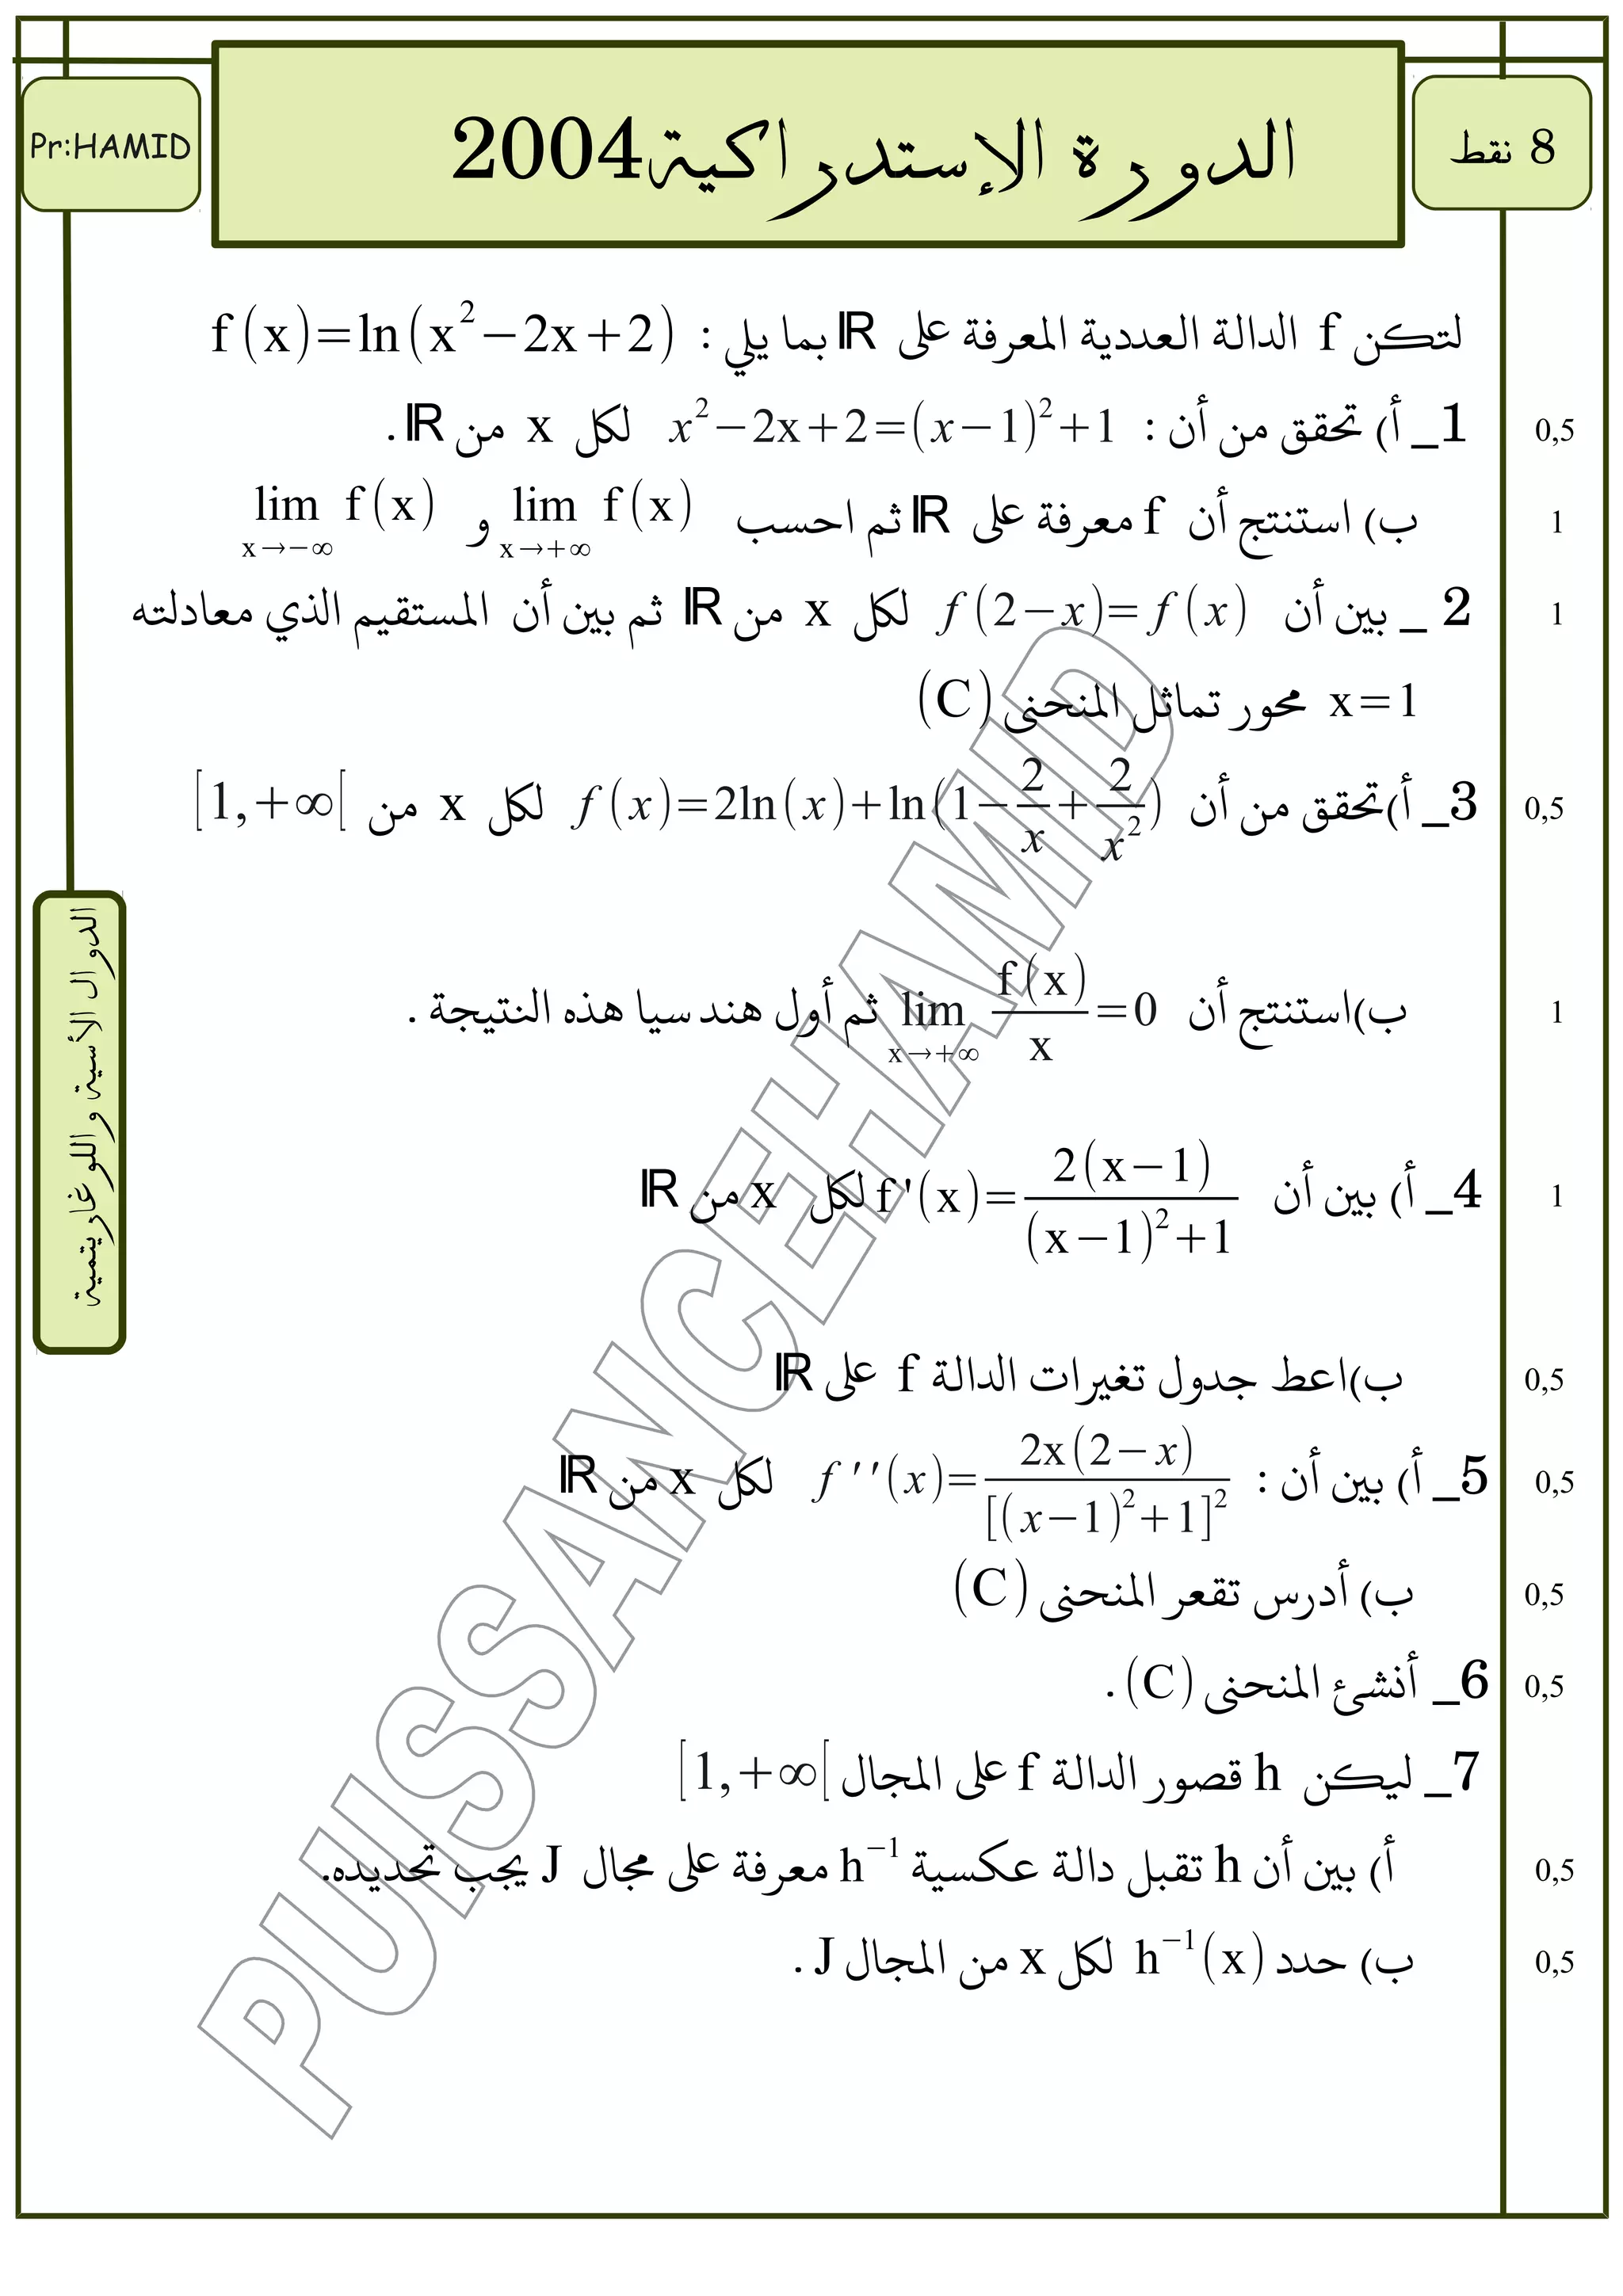 Pr:HAMID
الدورة الإستدراكية2004
8 نقط
لتكن f الدالة العددية المعرفة على IR بما يلي : f(x)=ln(x²−2x+2)
1_ أ) تحقق من أن : x²−2x+2=(x−1)²+1 لكل x من IR . 0,5
ب) استنتج أن f معرفة على IR ثم احسب lim x→+∞ f(x) و lim x→−∞ f(x) 1
2 _ بين أن f(2−x)=f(x) لكل x من IR ثم بين أن المستقيم الذي معادلته 1
x=1 محور تماثل المنحنى (C)
3_ أ)تحقق من أن f(x)=2ln(x)+ln(1−2/x+2/x²) لكل x من [1,+∞[ 0,5
ب)استنتج أن lim x→+∞ f(x)/x=0 ثم أول هندسيا هذه النتيجة . 1
4_ أ) بين أن f'(x)=2(x−1)/((x−1)²+1) لكل x من IR 1
ب)اعط جدول تغيرات الدالة f على IR 0,5
5_ أ) بين أن : f''(x)=2x(2−x)/[(x−1)²+1]² لكل x من IR 0,5
ب) أدرس تقعر المنحنى (C) 0,5
6_ أنشئ المنحنى (C) . 0,5
7_ ليكن h قصور الدالة f على المجال [1,+∞[
أ) بين أن h تقبل دالة عكسية h⁻¹ معرفة على مجال J يجب تحديده. 0,5
ب) حدد h⁻¹(x) لكل x من المجال J . 0,5
الدوال الأسية و اللوغاريتمية
PUISSANCEHAMID